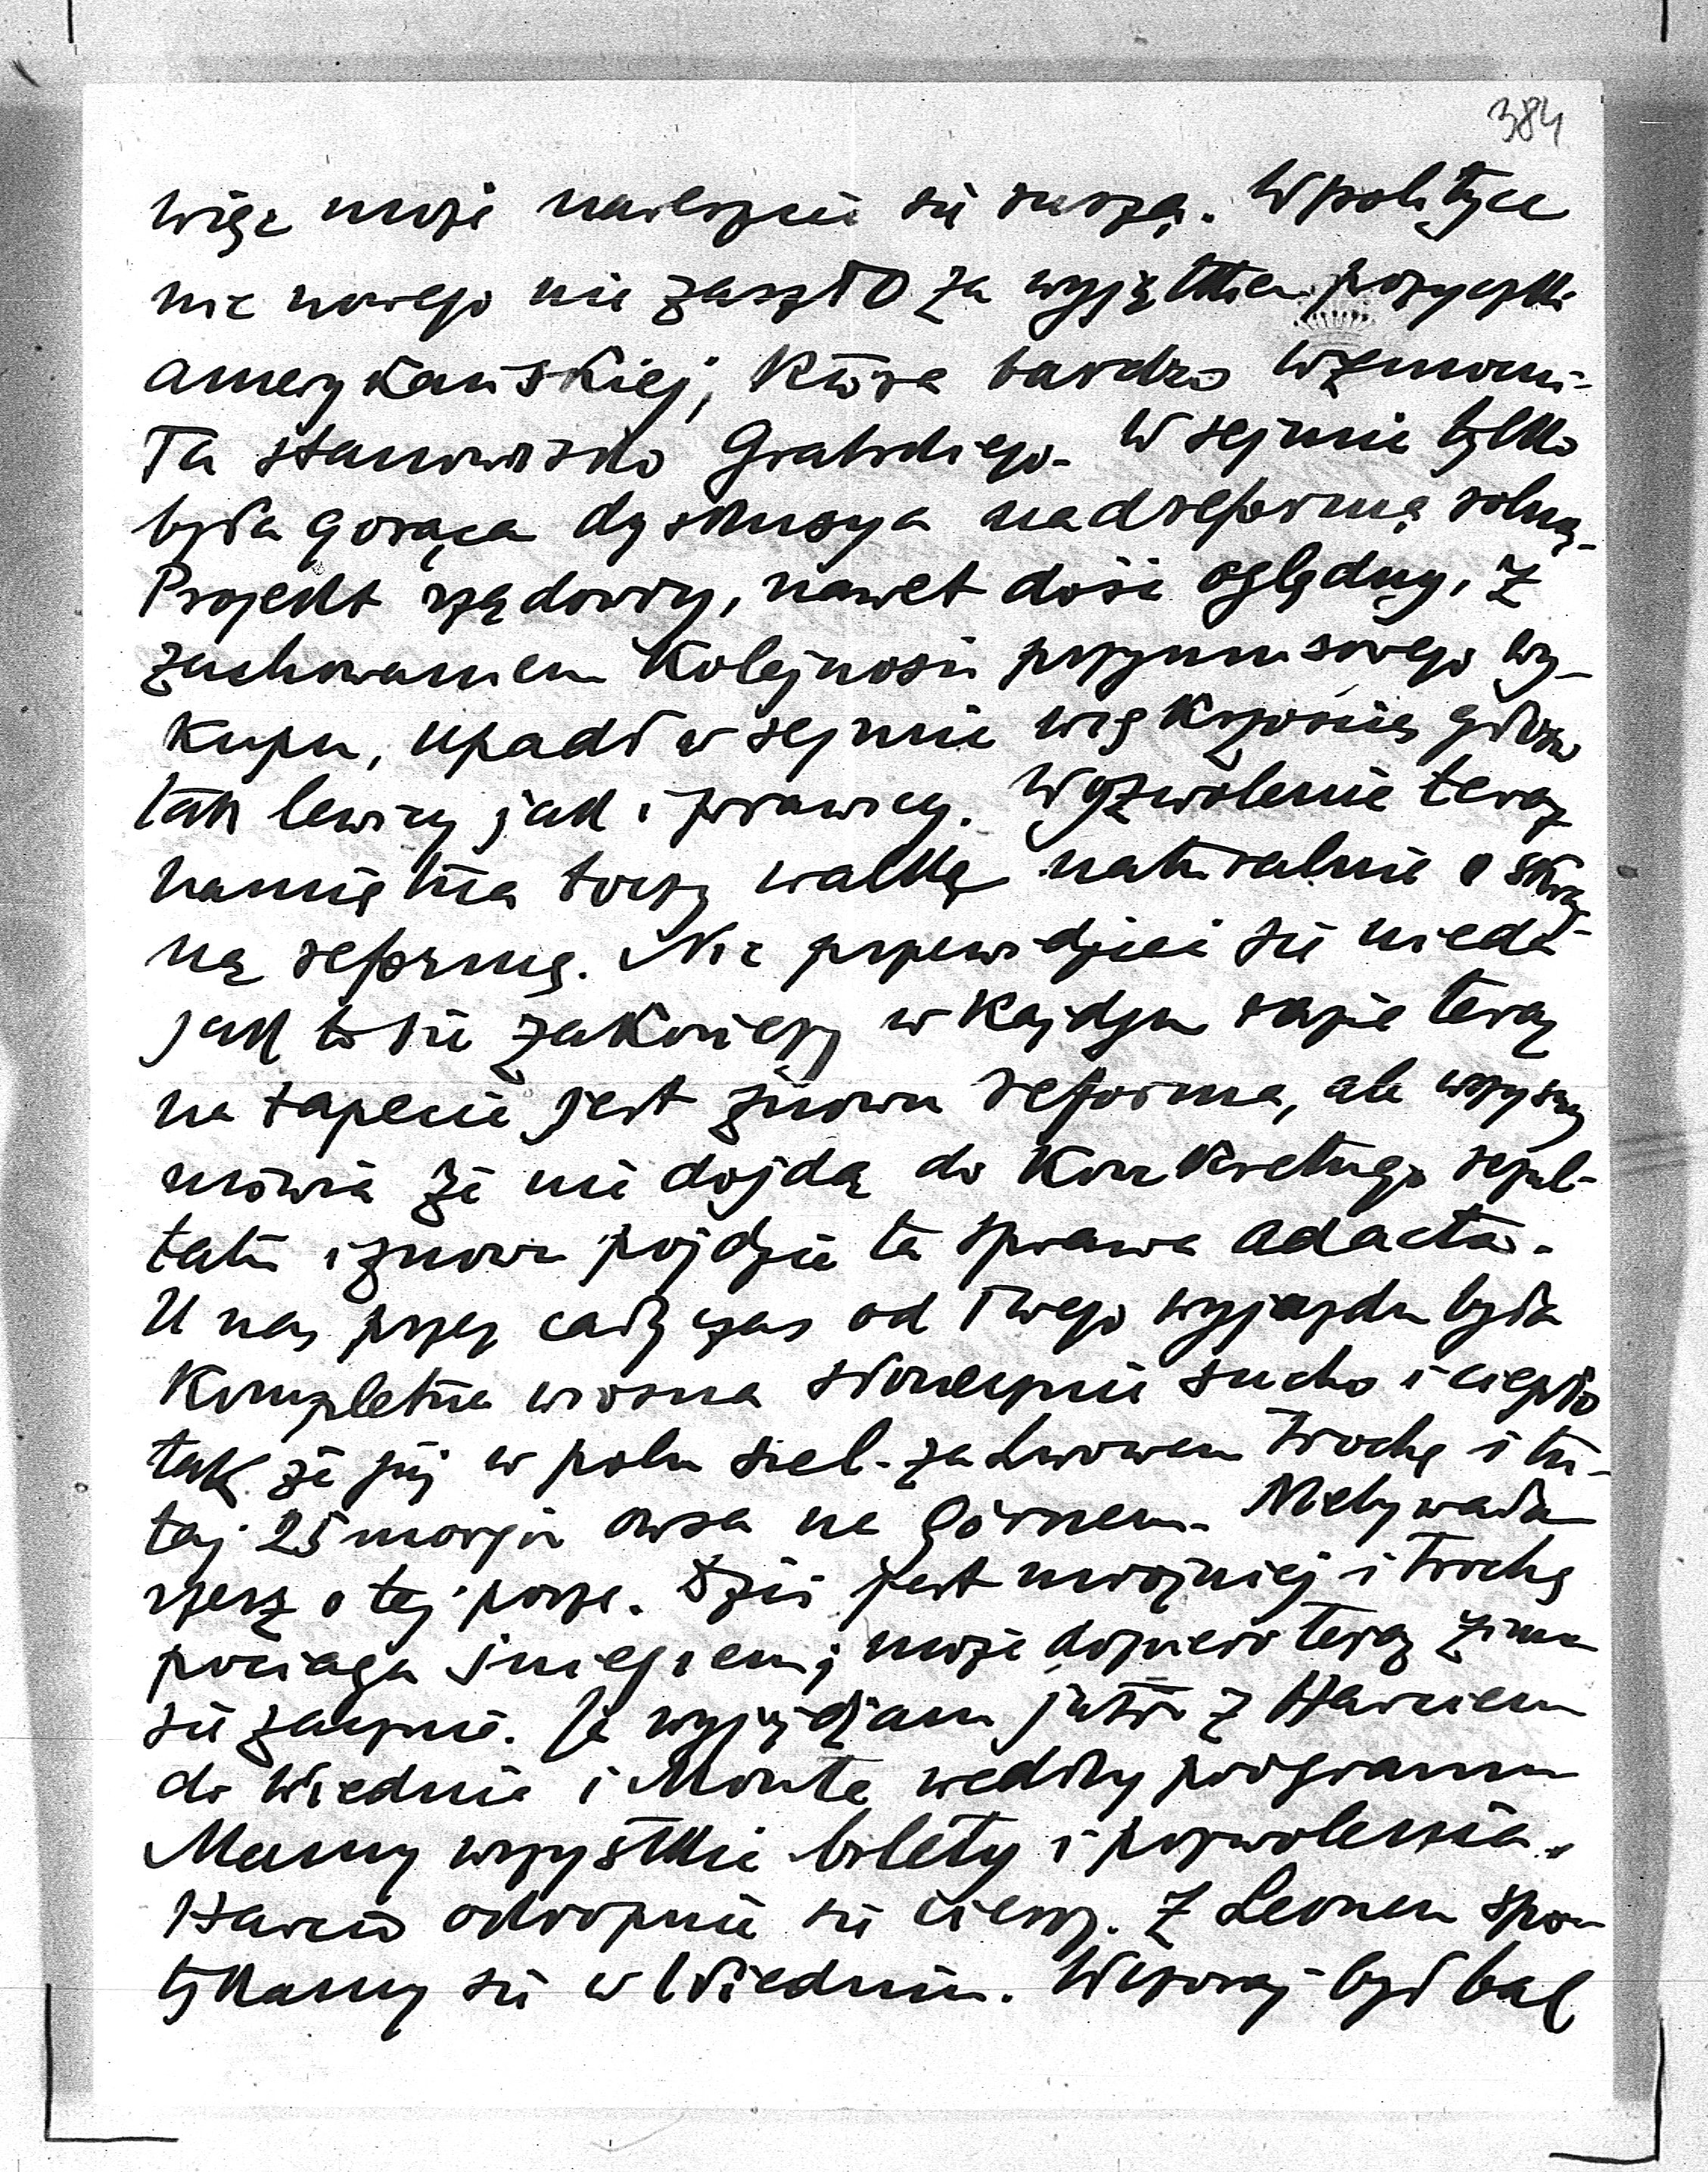 384
więc może nareszcie się ruszą. W polityce
nic nowego nie zaszło za wyjątkiem pożyczki
amerykańskiej, która bardzo wzmocni-
ła stanowisko Grabskiego. W sejmie tylko
była gorąca dyskusya nad reformą rolną.
Projekt rządowy, nawet dość oględny, z
zachowaniem kolejności przymusowego wy-
kupu, upadł w sejmie większością głosów
tak lewicy jak i prawicy. Wyzwolenie teraz
namiętnia toczy walkę naturalnie o skraj-
ną reformę. Nic przewidzieć się nieda
jak to się zakończy w każdym razie teraz
na tapecie jest znowu reforma, ale wszyscy
mówią że nie dojdą do konkretnego rezul-
tatu i znowu pójdzie ta sprawa ad acta.
U nas przez cały czas od Twego wyjazdu była
kompletna wiosna słonecznie sucho i ciepło
tak że już w polu siel. za Lwowem trochę i tu-
taj 25 morgów owsa na Górnem. Niebywała
rzecz o tej porze. Dziś jest mroźniej i trochę
pociąga śniegiem; może dopiero teraz zima
się zacznie. Ja wyjeżdżam jutro z Harciem
do Wiednia i Monte według programu
Mamy wszystkie bilety i pozwolenia.
Harcio okropnie się cieszy. Z Leonem spo-
tykamy się w Wiedniu. Wczoraj był bal